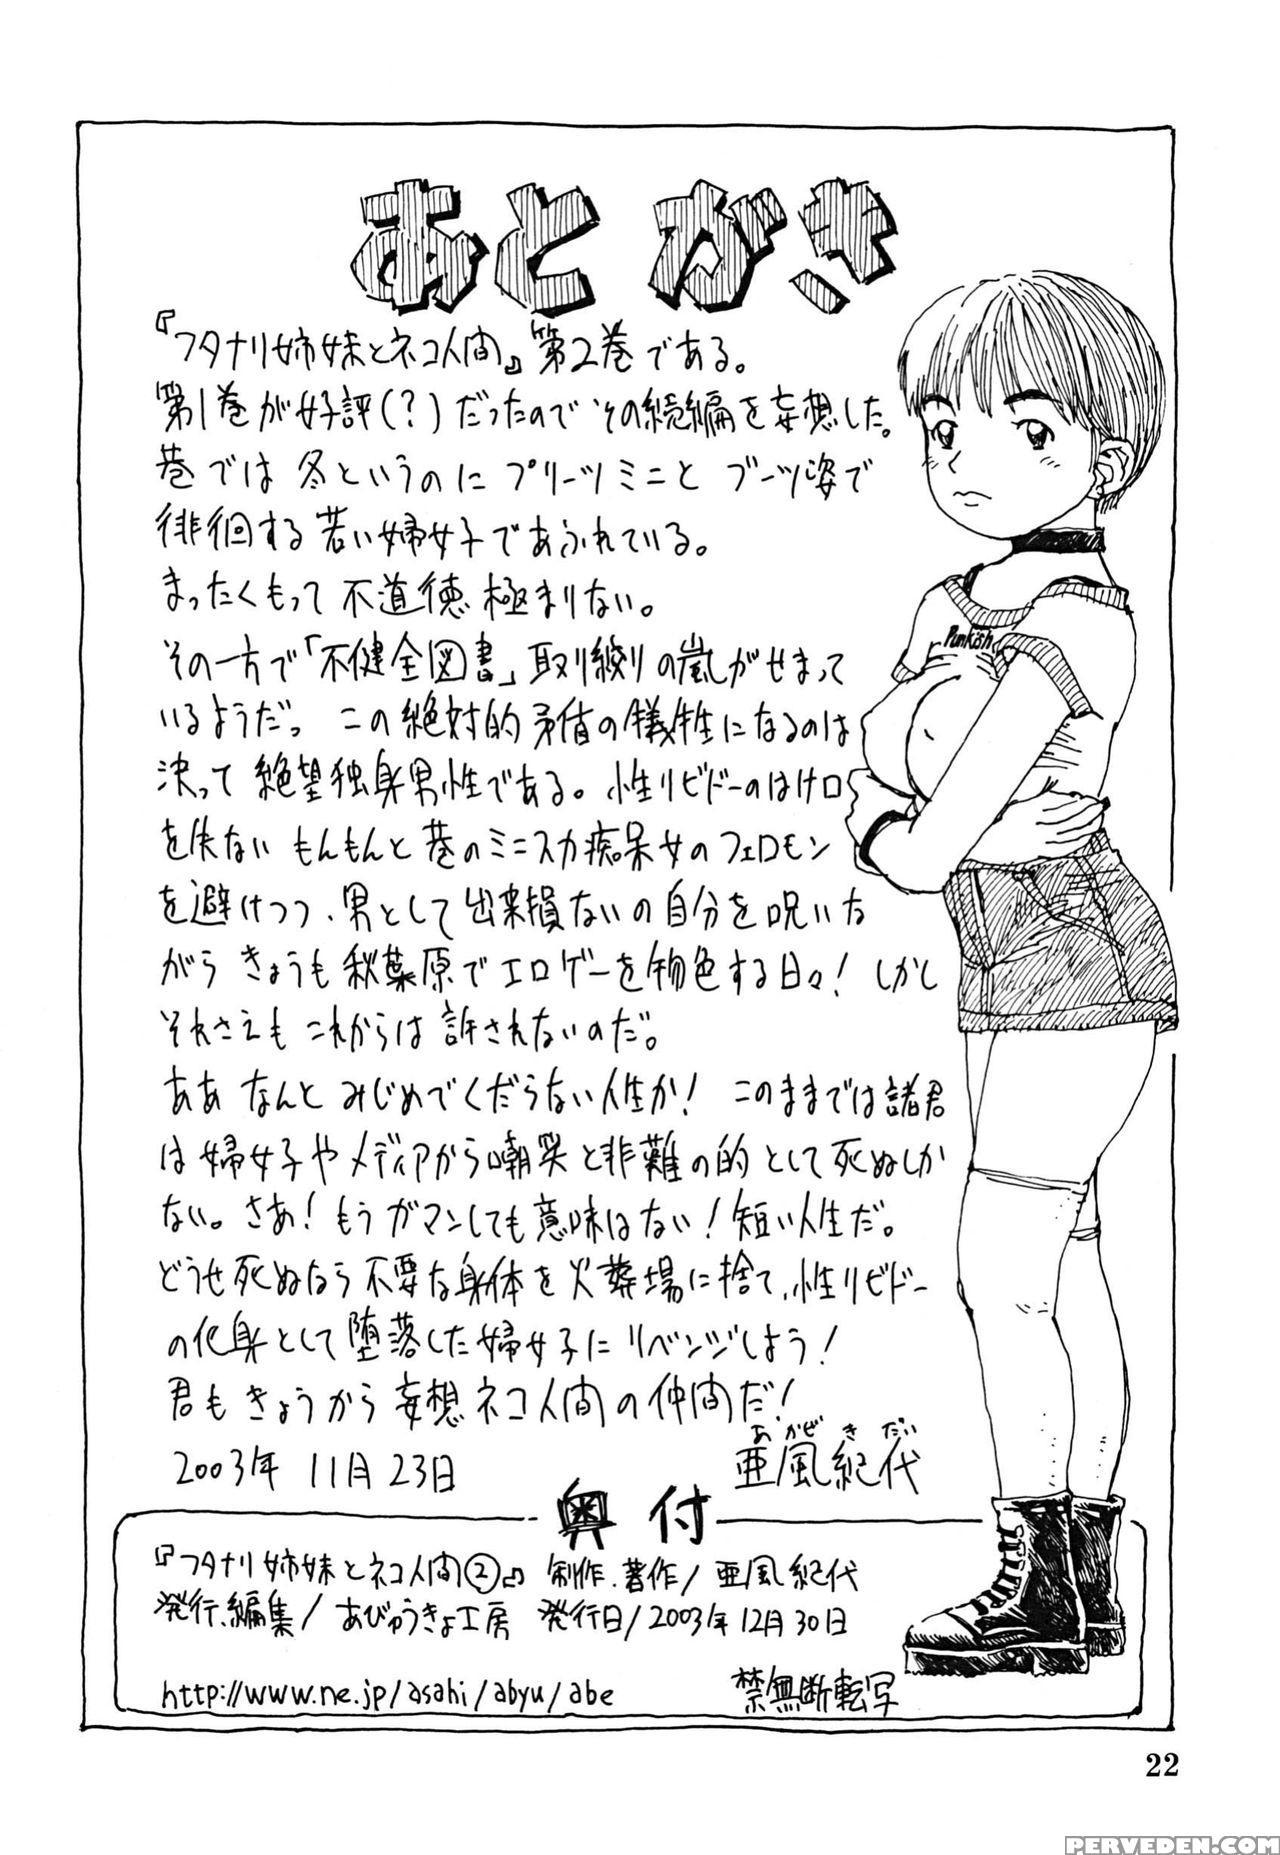 あとがき
『フタナリ姉妹とネコ人間』第2巻である。
第1巻が好評(?)だったのでその続編を妄想した。
巷では冬というのにプリーツミニとブーツ姿で
徘徊する若い婦女子であふれている。
まったくもって不道徳極まりない。
その一方で「不健全図書」取り締りの嵐がせまって
いるようだ。この絶対的矛盾の犠牲になるのは
決って絶望独身男性である。性リビドーのはけ口
を失ない もんもんと巷のミニスカ痴呆女のフェロモン
を避けつつ、男として出来損ないの自分を呪いな
がらきょうも秋葉原でエロゲーを物色する日々!しかし
それさえもこれからは許されないのだ。
ああ なんと みじめでくだらない人生か! このままでは諸君
は婦女子やメディアから嘲笑と非難の的として死ぬしか
ない。さあ!もうガマンしても意味はない!短い人生だ。
どうせ死ぬなら不要な身体を火葬場に捨て、性リビドー
の化身として堕落した婦女子にリベンジしよう!
君もきょうから妄想ネコ人間の仲間だ!
2003年 11月23日
あかぜきだい
亜風紀代
Punkish
奥付
『フタナリ姉妹とネコ人間②』 制作.著作/亜風紀代
発行.編集/あびゅうきょ工房 発行日/2003年12月30日
http://www.ne.jp/asahi/abyu/abe 禁無断転写
22
PERVEDEN.COM